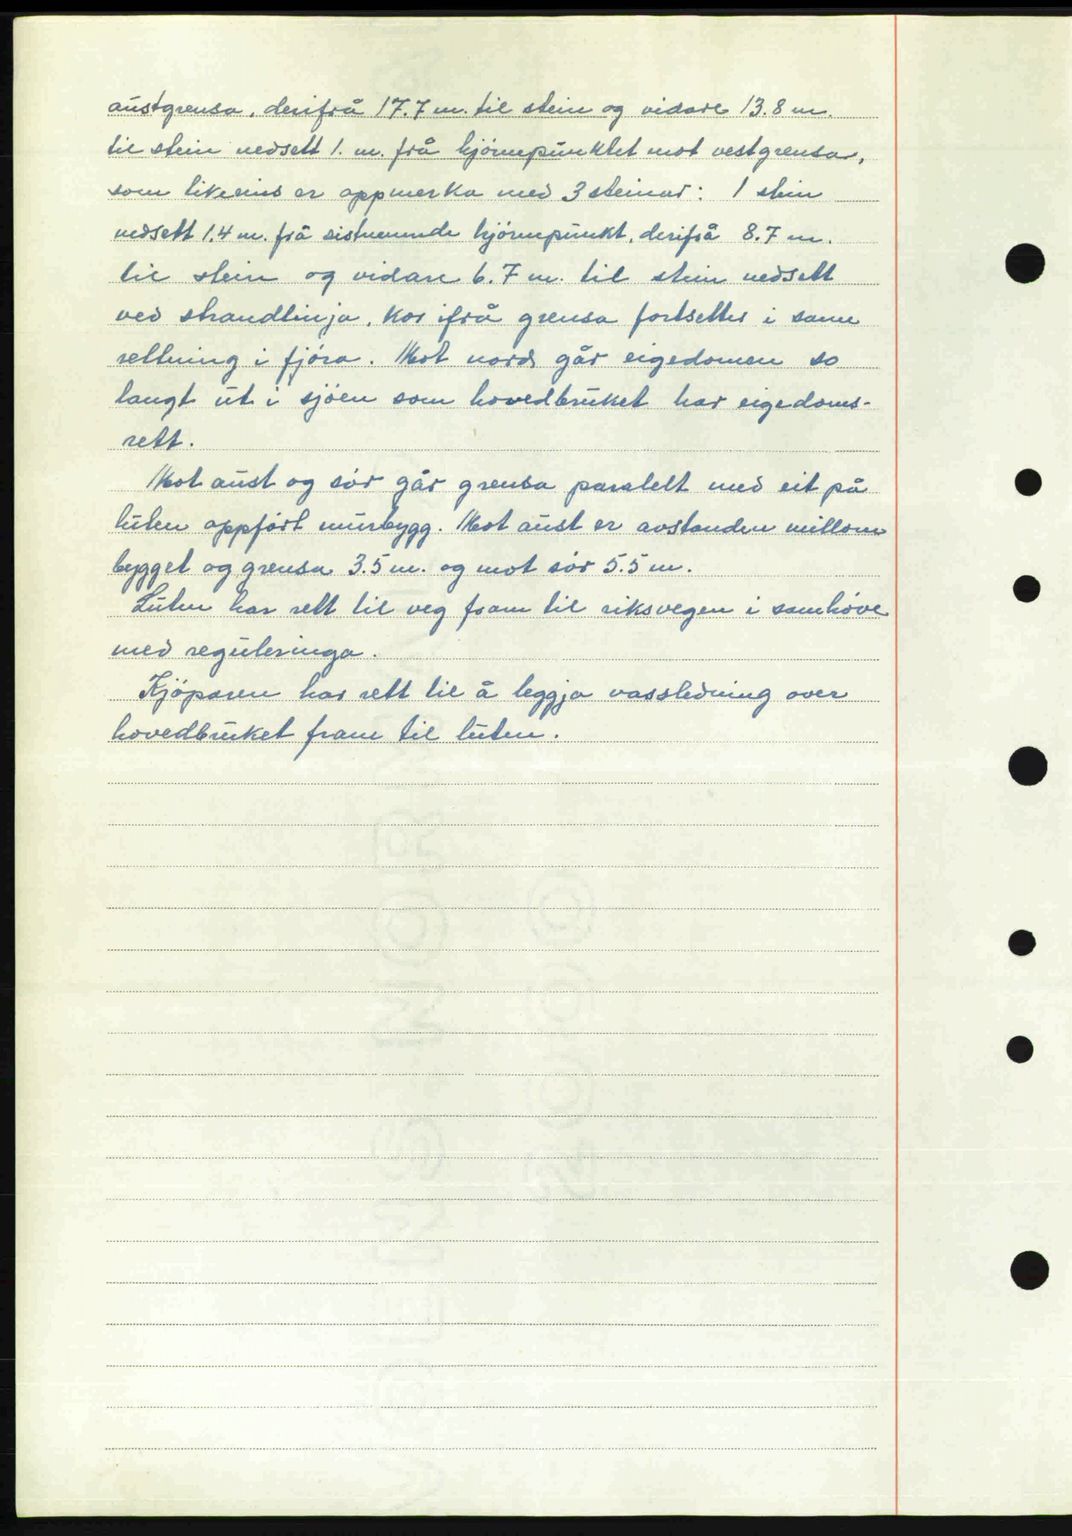 austgrensa, derifrå 17.7 m. til stein og vidare 13.8 m.
til stein nedsett 1. m. frå hjörnepunktet mot vestgrensa,
som likeeins er oppmerka med 3 steinar: 1 stein
nedsett 1.4 m. frå sistnemnde hjörnepunkt, derifrå 8.7 m.
til stein og vidare 6.7 m. til stein nedsett
ved strandlinja, kor ifrå grensa fortsetter i same
rettning i fjöra. Mot nord går eigedomen so
langt ut i sjöen som hovedbruket har eigedoms-
rett.
Mot aust og sör går grensa paralelt med eit på
luten oppfört murbygg. Mot aust er avstanden millom
bygget og grensa 3.5 m. og mot sör 5.5 m.
Luten har rett til veg fram til riksvegen i samhöve
med reguleringa.
Kjöparen har rett til å leggja vassledning over
hovedbruket fram til luten.